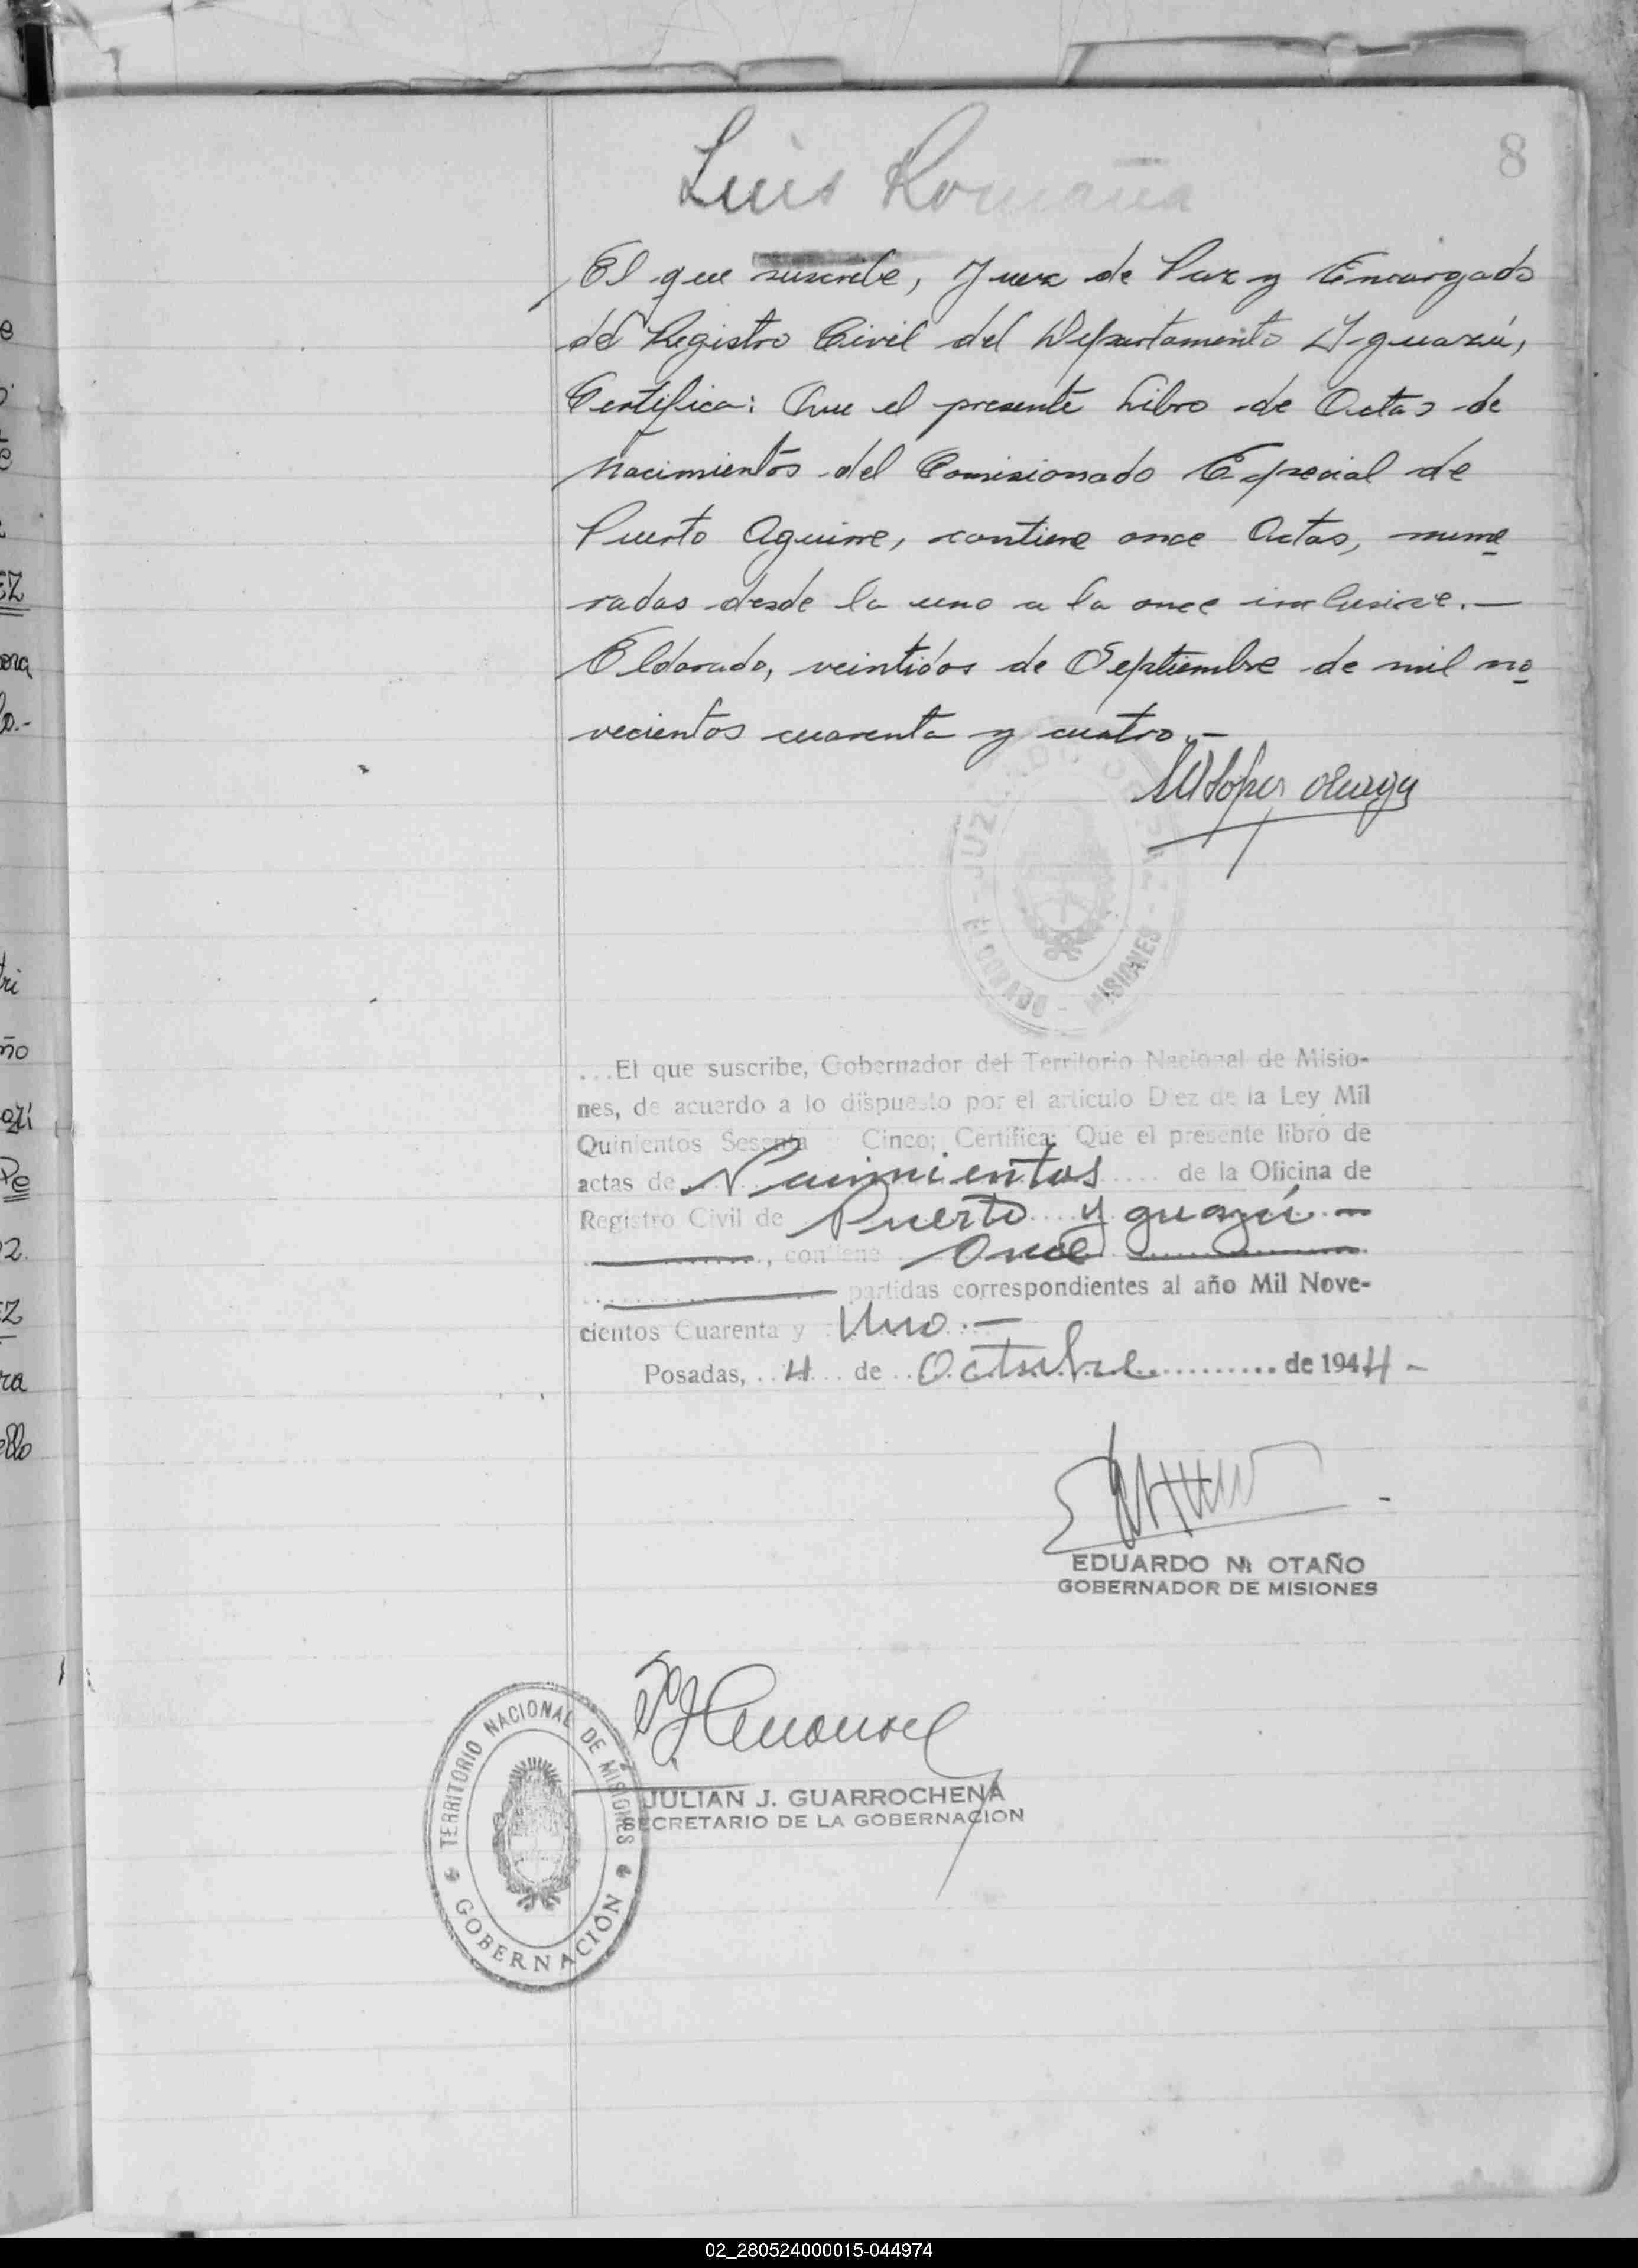 8
Luis Romaña
El que suscribe, Juez de Paz y Encargado
del Registro Civil del Departamento Iguazú,
Certifica: Que el presente Libro de Actas de
Nacimientos del Comisionado Especial de
Puerto Aguirre, contiene once Actas, nume
radas desde la uno a la once inclusive.—
Eldorado, veintidos de Septiembre de mil no
vecientos cuarenta y cuatro.—
ELDORADO - MISIONES
...El que suscribe, Gobernador del Territorio Nacional de Misio-
nes, de acuerdo a lo dispuesto por el artículo Diez de la Ley Mil
Quinientos Sesenta Cinco; Certifica: Que el presente libro de
actas de Nacimientos de la Oficina de
Registro Civil de Puerto Yguazú.—
, contiene Once
partidas correspondientes al año Mil Nove-
cientos Cuarenta y Uno.—
Posadas, 4 de Octubre de 1944-
EDUARDO N. OTAÑO
GOBERNADOR DE MISIONES
JULIAN J. GUARROCHENA
SECRETARIO DE LA GOBERNACION
TERRITORIO NACIONAL DE MISIONES
GOBERNACIÓN
ño
EZ
ra
02_280524000015-044974